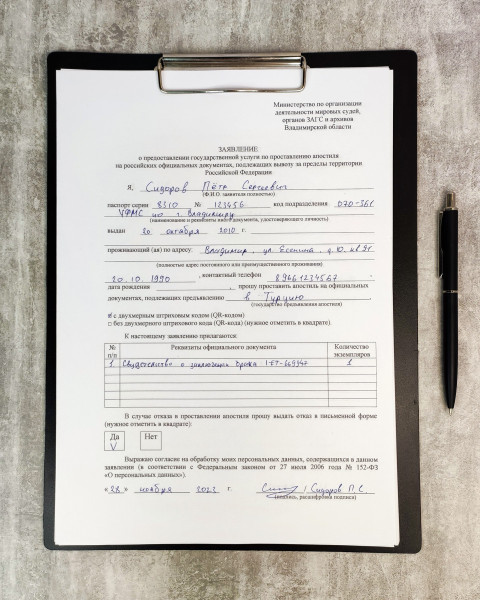 Министерство по организации
деятельности мировых судей,
органов ЗАГС и архивов
Владимирской области
ЗАЯВЛЕНИЕ
о предоставлении государственной услуги по проставлению апостиля
на российских официальных документах, подлежащих вывозу за пределы территории
Российской Федерации
Я, Сидоров Пётр Сергеевич
(Ф.И.О. заявителя полностью)
паспорт серии 8310 № 123456 код подразделения 070-361
УФМС по г. Владимиру
(наименование и реквизиты иного документа, удостоверяющего личность)
выдан 20 октября 2010 г.
проживающий (ая) по адресу: Владимир, ул. Есенина, д. 10, кв 91
(полностью адрес постоянного или преимущественного проживания)
20.10.1990, контактный телефон 89661234567
дата рождения , прошу проставить апостиль на официальных
документах, подлежащих предъявлению в Турцию
(государство предъявления апостиля)
с двухмерным штриховым кодом (QR-кодом)
□ без двухмерного штрихового кода (QR-кода) (нужное отметить в квадрате)
К настоящему заявлению прилагаются:
№ п/п Реквизиты официального документа Количество экземпляров
1. Свидетельство о заключении брака 1
В случае отказа в проставлении апостиля прошу выдать отказ в письменной форме
(нужное отметить в квадрате):
Да V Нет
Выражаю согласие на обработку моих персональных данных, содержащихся в данном
заявлении (в соответствии с Федеральным законом от 27 июля 2006 года № 152-ФЗ
«О персональных данных»).
«28» ноября 2022 г. / Сидоров П. С.
(подпись, расшифровка подписи)